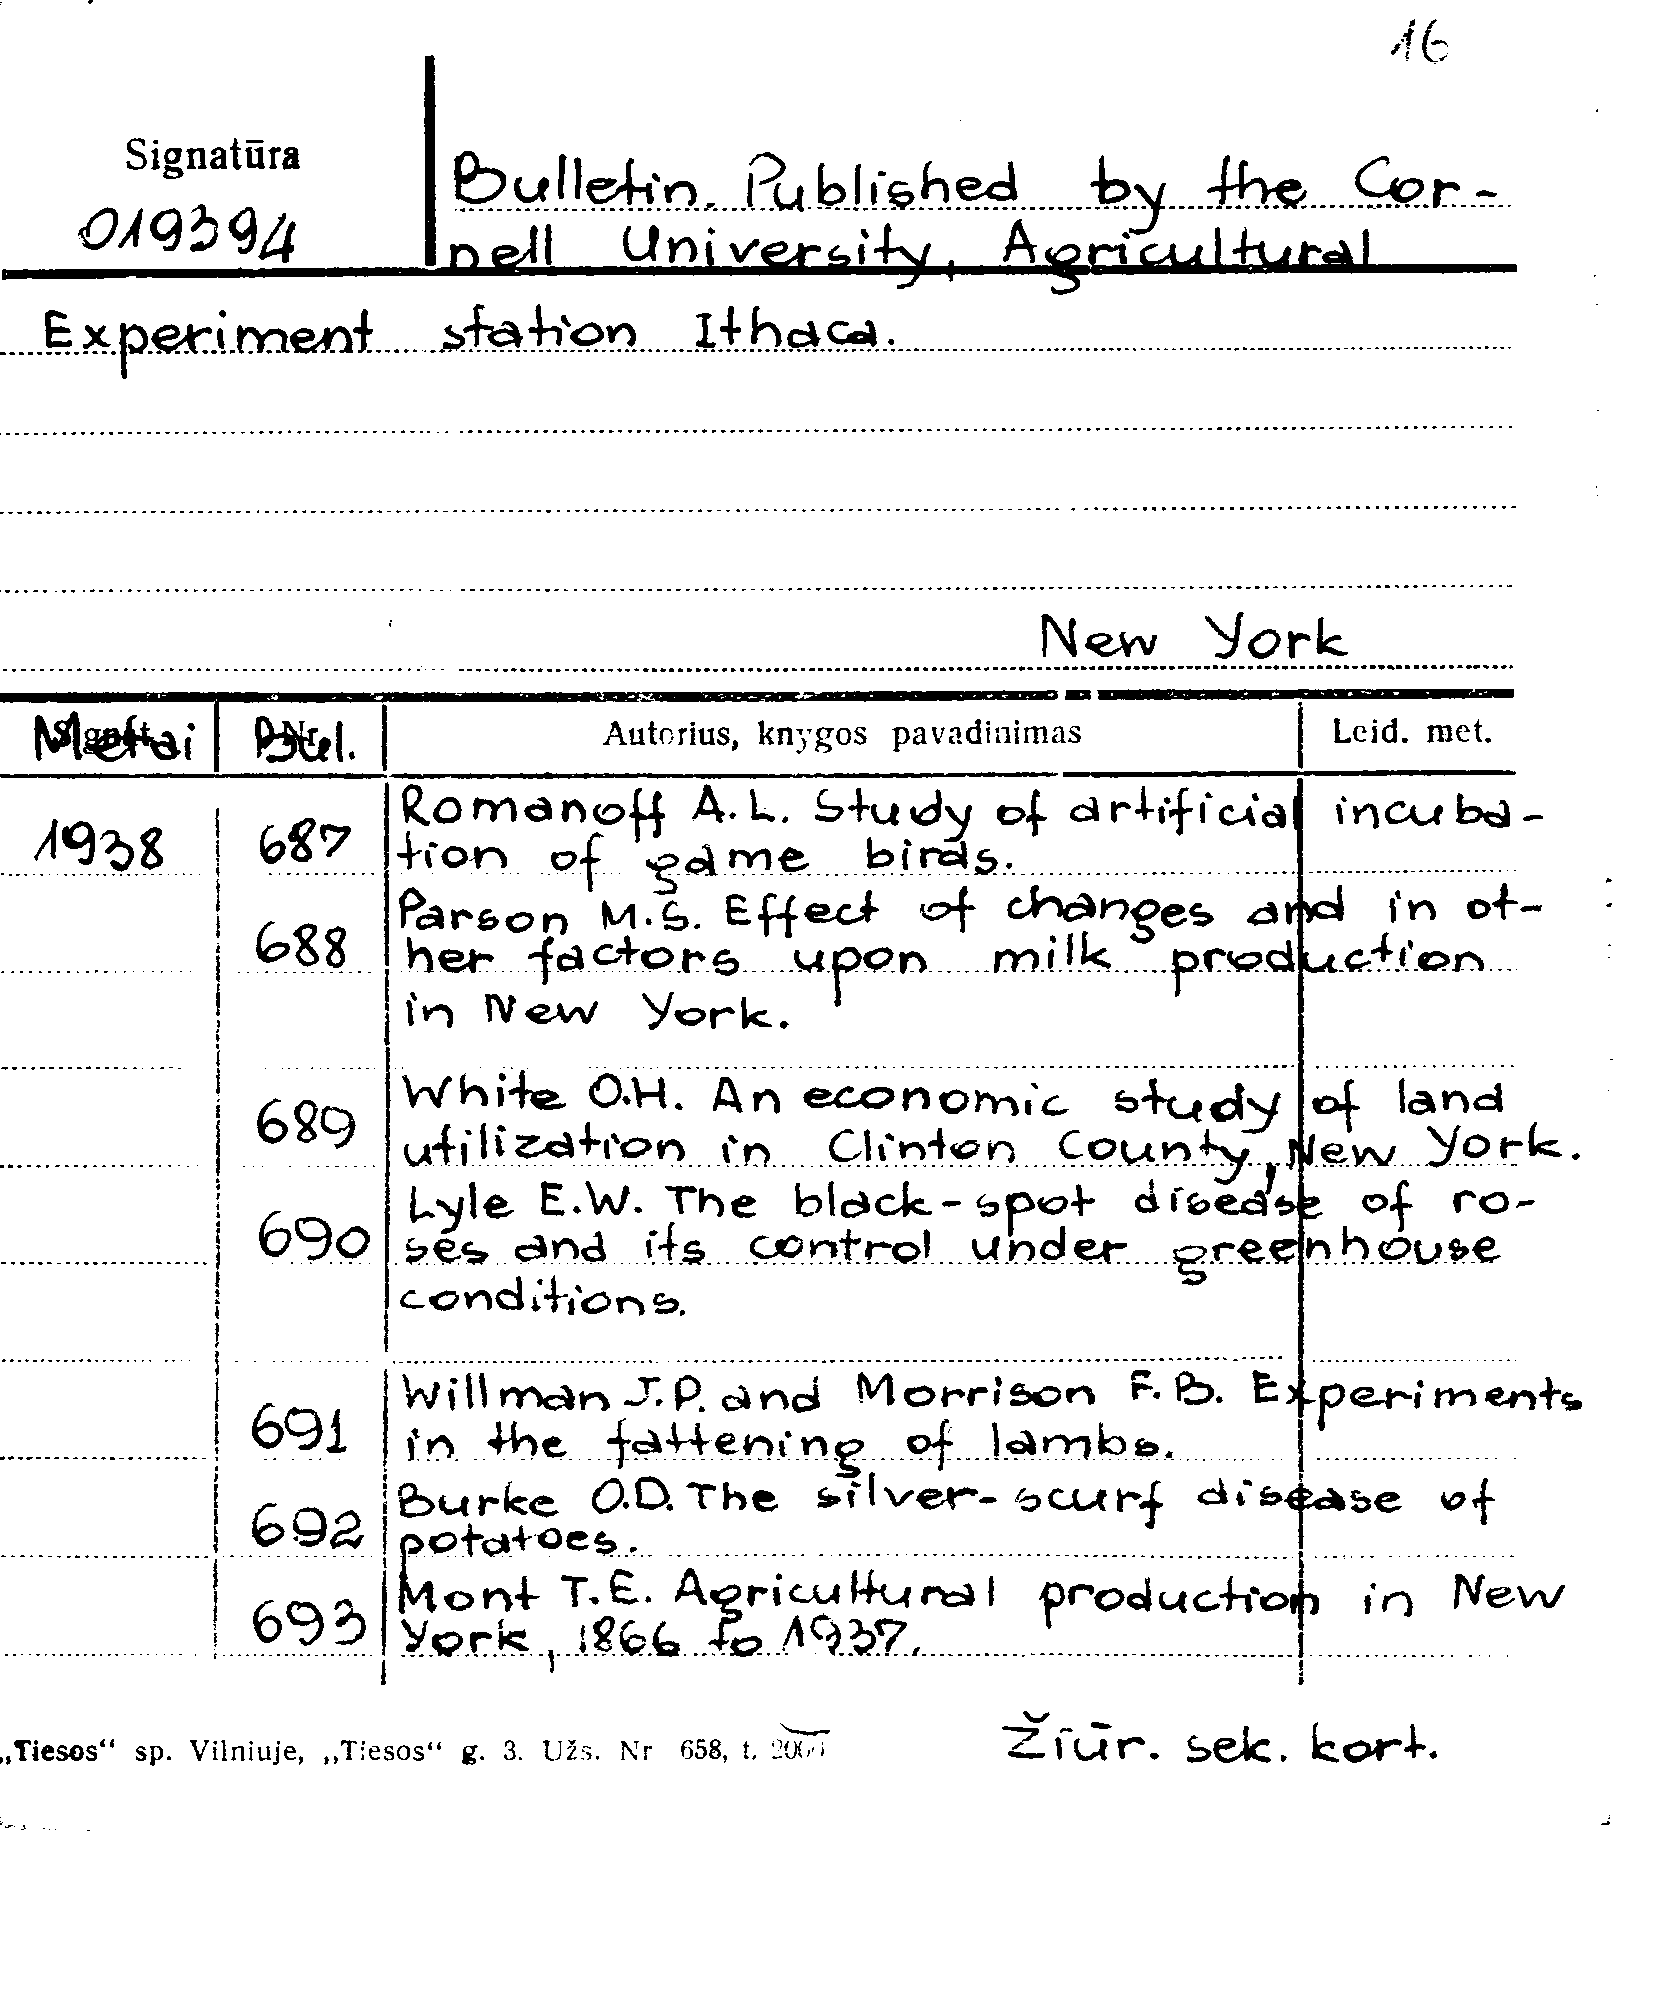 16
Signatūra
019394
Bulletin. Published by the Cor-
nell University, Agricultural
Experiment station Ithaca.
New York
Metai Bul. Autorius, knygos pavadinimas Leid. met.
1938 687 Romanoff A.L. Study of artificial incuba-
tion of game birds.
688 Parson M.S. Effect of changes and in ot-
her factors upon milk production
in New York.
689 White O.H. An economic study of land
utilization in Clinton County, New York.
690 Lyle E.W. The black-spot disease of ro-
ses and its control under greenhouse
conditions.
691 Willman J.P. and Morrison F.B. Experiments
in the fattening of lambs.
692 Burke O.D. The silver-scurf disease of
potatoes.
693 Mont T.E. Agricultural production in New
York, 1866 to 1937.
„Tiesos“ sp. Vilniuje, „Tiesos“ g. 3. Užs. Nr 658, t.
Žiūr. sek. kort.